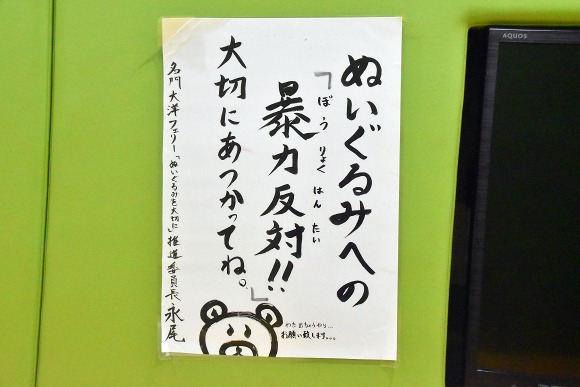 ぬいぐるみへの
「暴力反対!!
ぼうりょくはんたい
大切にあつかってね。」
名門大洋フェリー「ぬいぐるみを大切に」推進委員長 永尾
お願い致します。。。
AQUOS